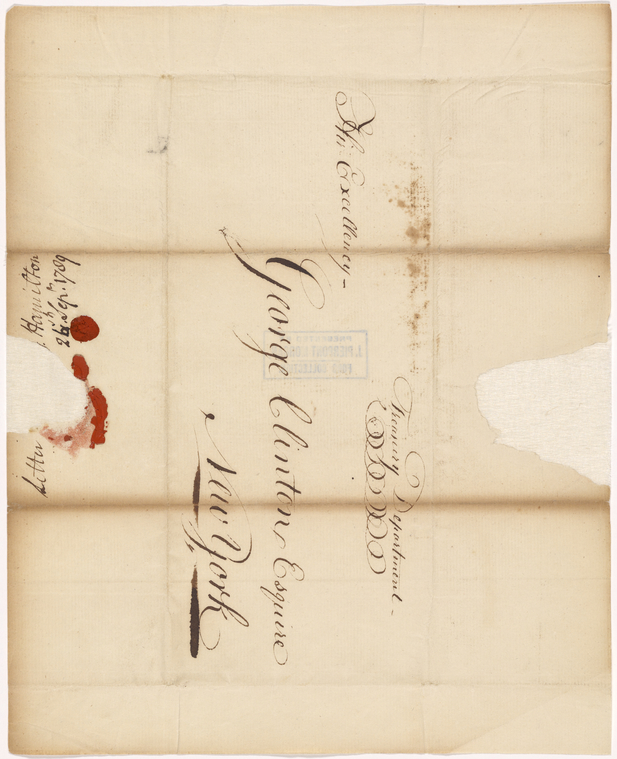 His Excellency -
George Clinton Esquire
New York
Treasury Department -
Letter
Hamilton
26th Sepr. 1789